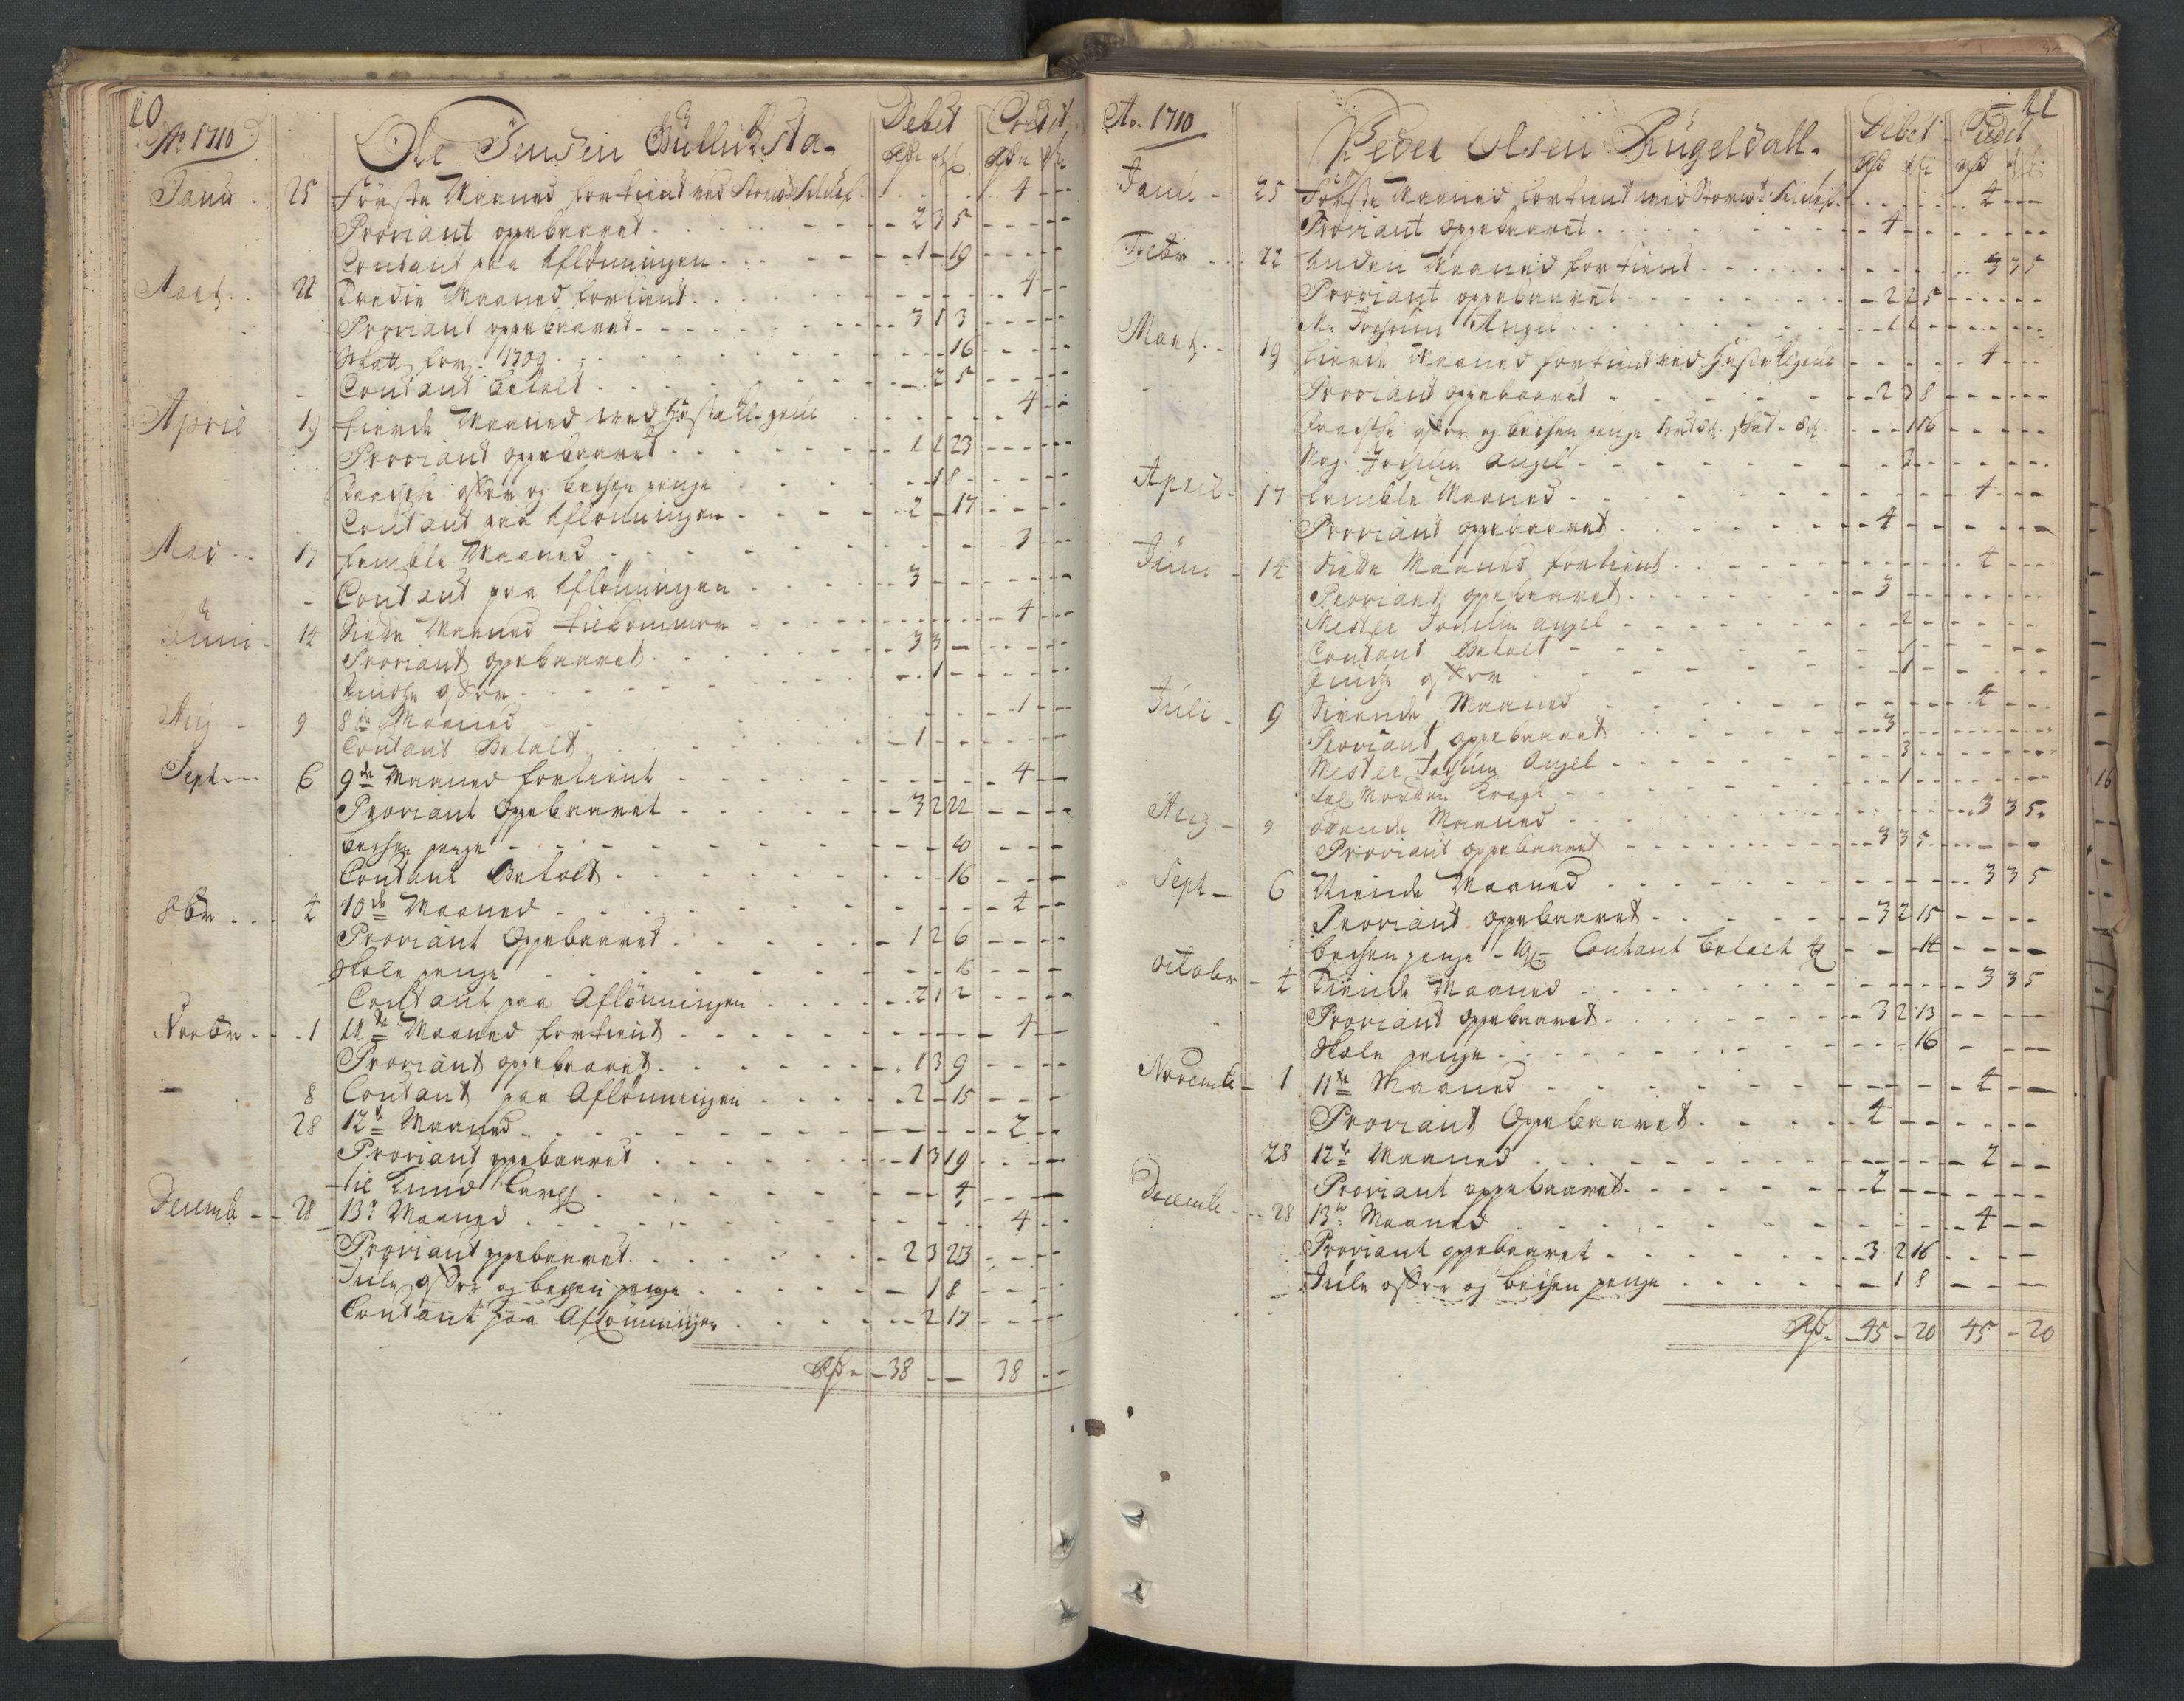 10
Ao 1710
Ole Jensen
Debet Credit
Janu. 25 Første Maaned fortient ved 4
Proviant oppebaaret 2 3 5
Contant paa Aflönningen 1 - 19
Tredie Maaned fortient 4
Proviant oppebaaret 3 1 3
Skatt for 1709 16
Contant betalt 2 5
April 19 fierde Maaned ved 4
Proviant oppebaaret 1 1 23
offer og bøchse penge 1 8
Contant paa Aflönningen 2 - 17
Mai 17 fembte Maaned 3
Contant paa Aflönningen 3
Juni 14 Siette Maaned tilkommer 4
Proviant oppebaaret 3 3
offer 1
Aug 9 8de Maaned 1
Contant Betalt 1
Sept 6 9de Maaned fortient 4
Proviant Oppebaaret 3 2 22
bøchse penge
Contant Betalt 16
8br 4 10de Maaned 4
Proviant Oppebaaret 1 2 6
Skole penge 16
Contant paa Aflönningen 2 1 2
Novbr 1 11te Maaned fortient 4
Proviant oppebaaret 1 3 9
8 Contant paa Aflönningen 2 - 15
28 12te Maaned 2
Proviant oppebaaret 1 3 19
til Knud 4
Decemb 28 13de Maaned 4
Proviant oppebaaret 2 3 23
Jule offer og bøchsen penge 1 8
Contant paa Aflönningen 2 17
38 38
11
Ao 1710
Peder Olsen Rügeldall
Debet Credit
Janu 25 Første Maaned fortient ved 4
Proviant oppebaaret 4
Febr 22 Anden Maaned fortient 3 3 5
Proviant oppebaaret 2 2 5
M. Jochum Angel 1 1
19 fierde Maaned fortient ved 4
Proviant oppebaaret 2 3 8
offer og bøchsen penge 1 16
Jochum Angel 3
April 17 fembte Maaned 4
Proviant oppebaaret 4
Juni 14 Siette Maaned fortient 4
Proviant oppebaaret 3
Mester Jochum Angel 2
Contant Betalt 1
offer 1
Juli 9 Siuende Maaned 4
Proviant oppebaaret 3
Mester Jochum Angel 3
1
Aug 9 ottende Maaned 3 3 5
Proviant oppebaaret 3 3 5
Sept 6 Niende Maaned 3 3 5
Proviant oppebaaret 3 2 15
bøchsen penge Contant betalt 14
October 4 Tiende Maaned 3 3 5
Proviant oppebaaret 3 2 13
Skole penge 16
Novemb 1 11te Maaned 4
Proviant Oppebaaret 4
28 12te Maaned 2
Proviant oppebaaret 2
Decemb 28 13de Maaned 4
Proviant oppebaaret 3 2 16
Jule offer og bøchsen penge 1 8
45 - 20 45 - 20
16